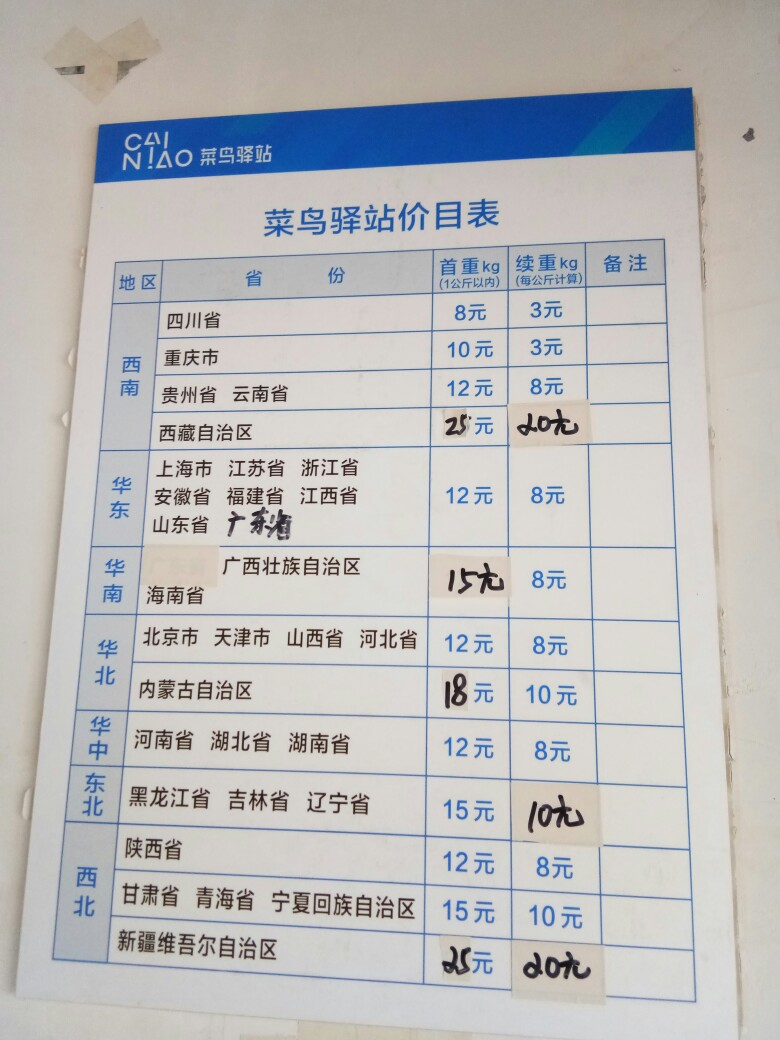 CAI
NIAO 菜鸟驿站
菜鸟驿站价目表
地区 省 份 首重kg (1公斤以内) 续重kg (每公斤计算) 备注
西南
四川省 8元 3元
重庆市 10元 3元
贵州省 云南省 12元 8元
西藏自治区 25元 20元
华东
上海市 江苏省 浙江省
安徽省 福建省 江西省 12元 8元
山东省 广东省
华南
广西壮族自治区 15元 8元
海南省
华北
北京市 天津市 山西省 河北省 12元 8元
内蒙古自治区 18元 10元
华中
河南省 湖北省 湖南省 12元 8元
东北
黑龙江省 吉林省 辽宁省 15元 10元
西北
陕西省 12元 8元
甘肃省 青海省 宁夏回族自治区 15元 10元
新疆维吾尔自治区 25元 20元